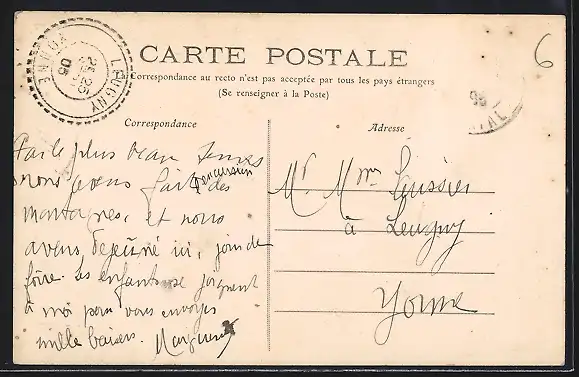 CARTE POSTALE
La Correspondance au recto n'est pas acceptée par tous les pays étrangers
(Se renseigner à la Poste)
Correspondance
Adresse
6
LEUGNY
YONNE
25
05
Par le plus beau temps
nous avons fait des
montagnes, et nous
avons déjeuné ici,
foire. Les enfants se joignent
à moi pour vous envoyer
mille baisers.
Mr Mme
à Leugny
Yonne